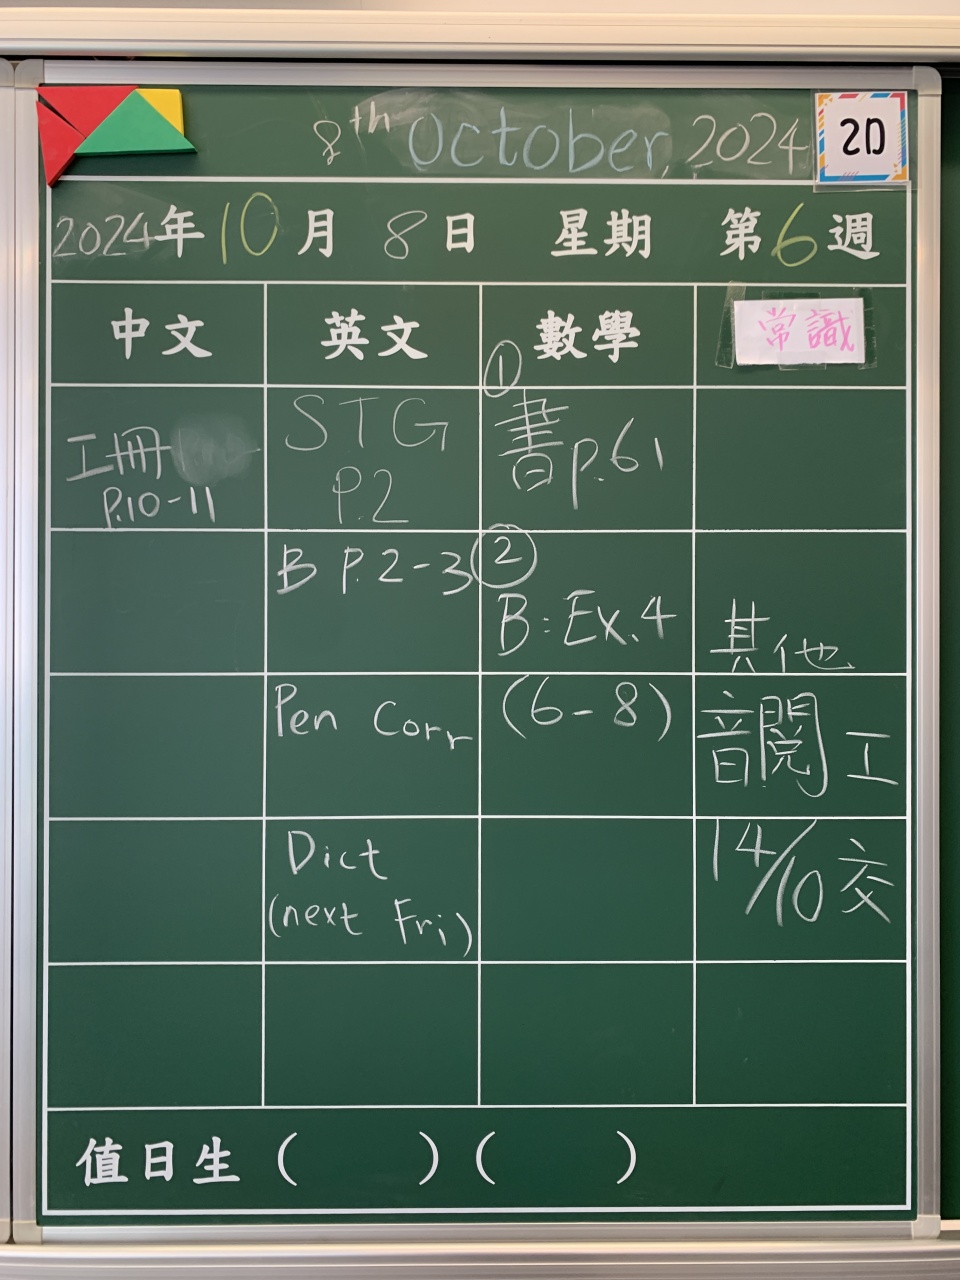 8th October, 2024
2D
2024年10月8日 星期 第6週
中文 英文 數學 常識
工冊
P.10-11
STG
P.2
①
書p.61
B P.2-3
②
B:Ex.4
其他
Pen Corr
(6-8)
音閱工
Dict
(next Fri)
14/10交
值日生( )( )